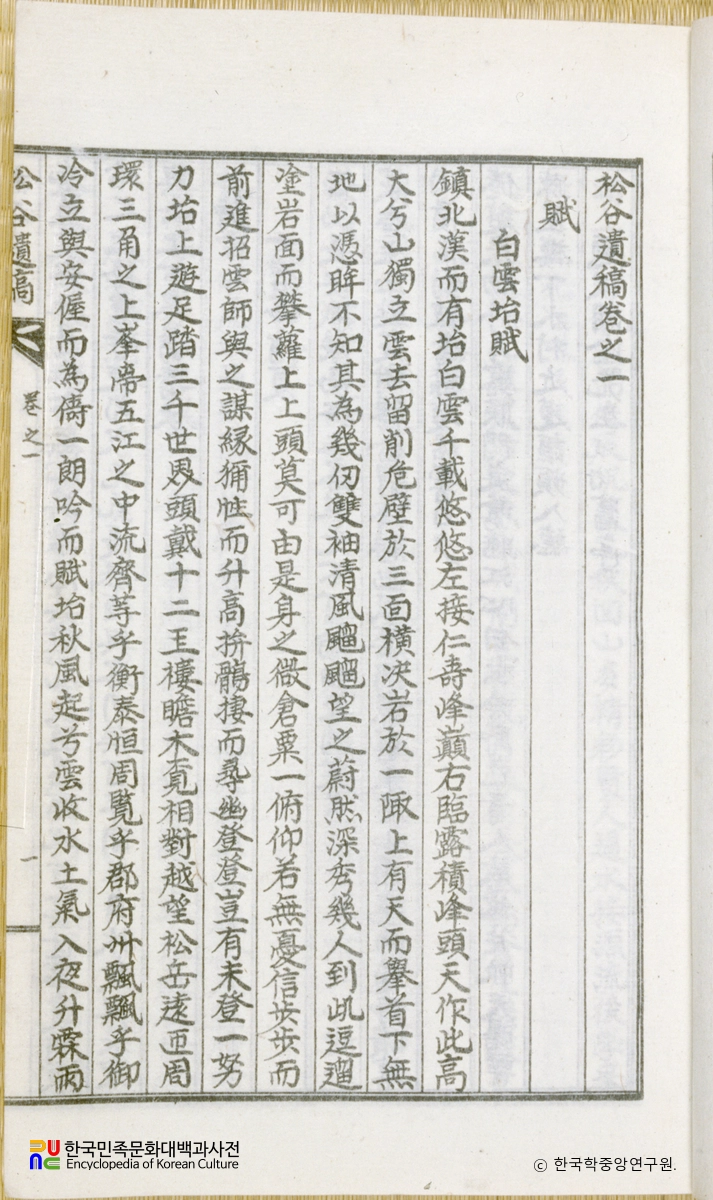 松谷遺稿卷之一
賦
白雲坮賦
鎮北漢而有坮白雲千載悠悠左接仁壽峰巓右臨露積峰頭天作此高
大兮山獨立雲去留削危壁於三面橫决岩於一陬上有天而擧首下無
地以憑眸不知其為幾仞雙袖清風飀飀望之蔚然深秀幾人到此逗遛
塗岩面而攀蘿上上頭莫可由是身之微倉粟一俯仰若無憂信步步而
前進招雲師與之謀緣獼
而升高捹鶻捿而尋幽登登豈有未登一努
力坮上遊足踏三千世界頭戴十二王樓瞻木覓相對越望松岳遠亞周
環三角之上峯帝五江之中流齊等乎衡泰恒周覧乎郡府州飄飄乎御
冷立與安偓而為儔一朗吟而賦坮秋風起兮雲收水土氣入夜升霖雨
松谷遺稿
卷之一
一
한국민족문화대백과사전
Encyclopedia of Korean Culture
ⓒ 한국학중앙연구원.